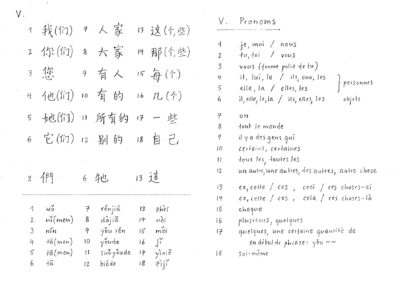 V.
1 我(们) 7 人家 13 这(个,些)
2 你(们) 8 大家 14 那(个,些)
3 您 9 有人 15 每(个)
4 他(们) 10 有的 16 几(个)
5 她(们) 11 所有的 17 一些
6 它(们) 12 别的 18 自己
2 們 6 牠 13 這
1 wǒ 7 rénjiā 13 zhèi
2 nǐ(men) 8 dàjiā 14 nèi
3 nín 9 yǒu rén 15 měi
4 tā(men) 10 yǒude 16 jǐ
5 tā(men) 11 suǒyǒude 17 yìxiē
6 tā 12 biéde 18 zìjǐ
V. Pronoms
1 je, moi / nous
2 tu, toi / vous
3 vous (forme polie de tu)
4 il, lui, le / ils, eux, les
5 elle, la / elles, les
personnes
6 il, elle, le, la / ils, elles, les objets
7 on
8 tout le monde
9 il y a des gens qui
10 certains, certaines
11 tous les, toutes les
12 un autre, une autre, des autres, autre chose
13 ce, cette / ces, ceci / ces choses-ci
14 ce, cette / ces, cela / ces choses-là
15 chaque
16 plusieurs, quelques
17 quelques, une certaine quantité de
en début de phrase: yǒu ~~
18 soi-même